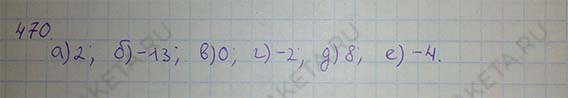 470.
а) 2; б) -13; в) 0; г) -2; д) 8; е) -4.